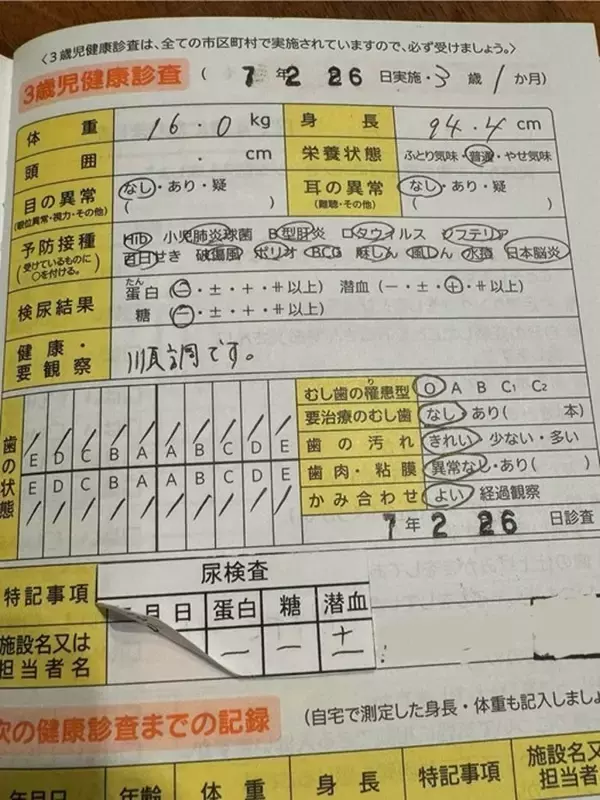 〈3歳児健康診査は、全ての市区町村で実施されていますので、必ず受けましょう。〉
3歳児健康診査 ( 7年 2 26 日実施・3歳 1か月)
体重 16.0 kg 身長 94.4 cm
頭囲 . cm 栄養状態 ふとり気味・普通・やせ気味
目の異常 (眼位異常・視力・その他) なし・あり・疑 ( ) 耳の異常 (難聴・その他) なし・あり・疑 ( )
予防接種 Hib 小児肺炎球菌 B型肝炎 ロタウイルス ジフテリア
(受けているものに○を付ける。) 百日せき 破傷風 ポリオ BCG 麻しん 風しん 水痘 日本脳炎
検尿結果 蛋白(たん) (－・±・+・⧺以上) 潜血 (－・±・+・⧺以上)
糖 (－・±・+・⧺以上)
健康・要観察 順調です。
歯の状態
E D C B A A B C D E
E D C B A A B C D E
むし歯の罹患型(り) O A B C₁ C₂
要治療のむし歯 なし・あり( 本)
歯の汚れ きれい・少ない・多い
歯肉・粘膜 異常なし・あり( )
かみ合わせ よい・経過観察
7年 2 26 日診査
特記事項 尿検査
月 日 蛋白 糖 潜血
施設名又は担当者名 － － ＋
次の健康診査までの記録 (自宅で測定した身長・体重も記入しましょ
年月日 年齢 体重 身長 特記事項 施設名又 担当者